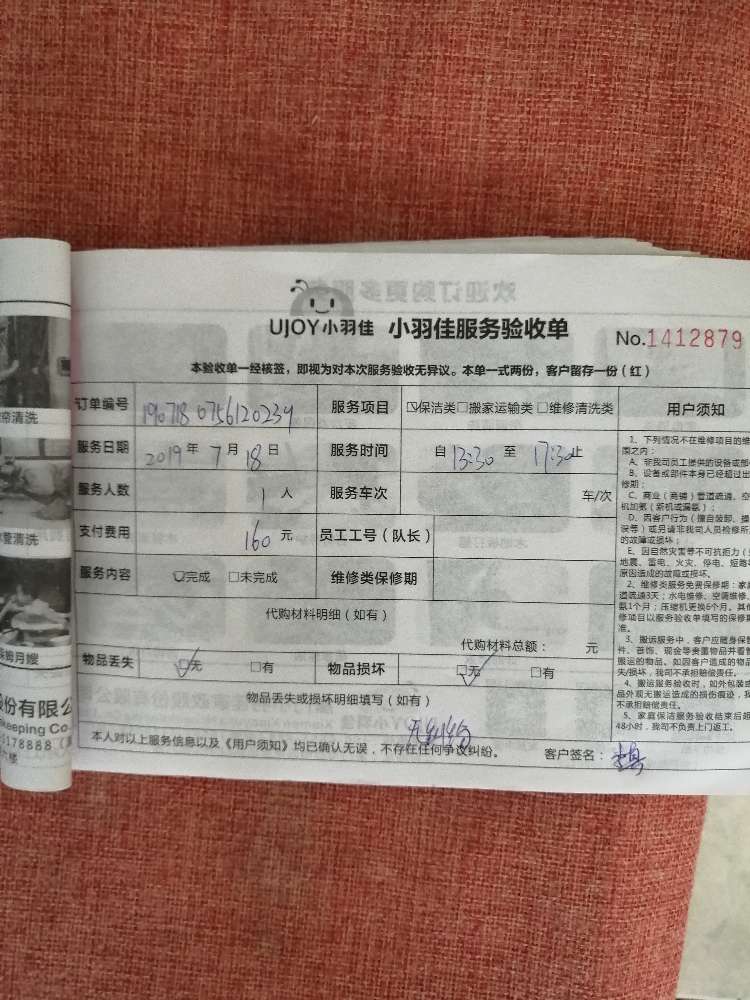 欢迎订购更多服
UJOY小羽佳 小羽佳服务验收单
No.1412879
本验收单一经核签，即视为对本次服务验收无异议。本单一式两份，客户留存一份（红）
订单编号 190718 0756120234 服务项目 ☑保洁类□搬家运输类□维修清洗类 用户须知
服务日期 2019 年 7 月 18 日 服务时间 自 13:30 至 17:30 止
服务人数 1 人 服务车次 车/次
支付费用 160 元 员工工号（队长）
服务内容 ☑完成 □未完成 维修类保修期
代购材料明细（如有）
代购材料总额： 元
物品丢失 ☑无 □有 物品损坏 ☑无 □有
物品丢失或损坏明细填写（如有）
无纠纷
本人对以上服务信息以及《用户须知》均已确认无误，不存在任何争议纠纷。 客户签名：
1、下列情况不在维修项目的维
围之内：
A、非我司员工提供的设备或部
B、设备或部件本身已经超过出
修期；
C、商业（商铺）管道疏通、空
机加氨（新机或漏氨）；
D、因客户行为（擅自装卸、操
误等）或另请非我司人员检修所
的故障或损坏；
E、因自然灾害等不可抗拒力（
地震、雷电、火灾、停电、短路
原因造成的故障或损坏。
2、维修类服务免费保修期：家
道疏通3天；水电维修、空调维修、
氨1个月；压缩机更换6个月。其他
修项目以服务验收单填写的保修期
准。
3、搬运服务中，客户应随身保
件、首饰、现金等贵重物品并看管
搬运的物品。如因客户造成的物品
失/损坏，我司不承担赔偿责任。
4、搬运服务验收时，如外包装或
品外观无搬运造成的损伤痕迹，我
不承担赔偿责任。
5、家庭保洁服务验收结束后超
48小时，我司不负责上门返工。
帘清洗
管清洗
月嫂
份有限公
keeping Co
5178888
楼